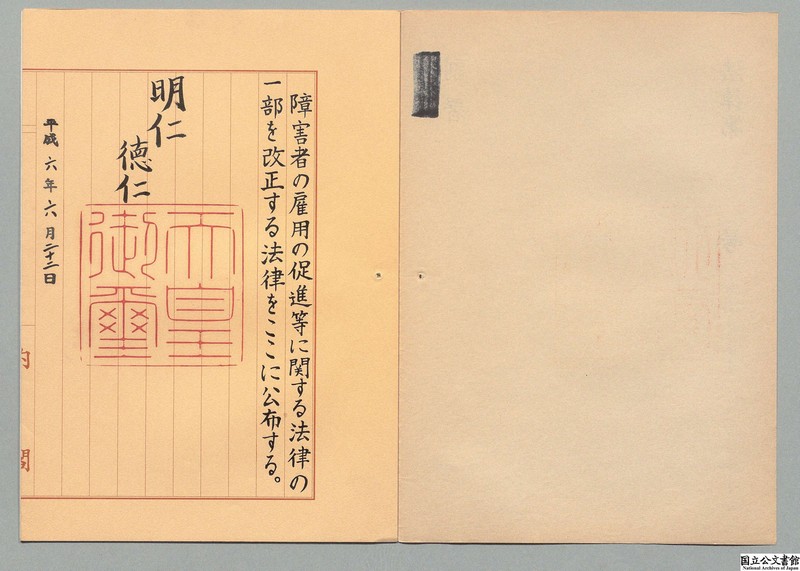 障害者の雇用の促進等に関する法律の
一部を改正する法律をここに公布する。
明仁
徳仁
天皇
御璽
平成六年六月二十二日
内閣
国立公文書館
National Archives of Japan